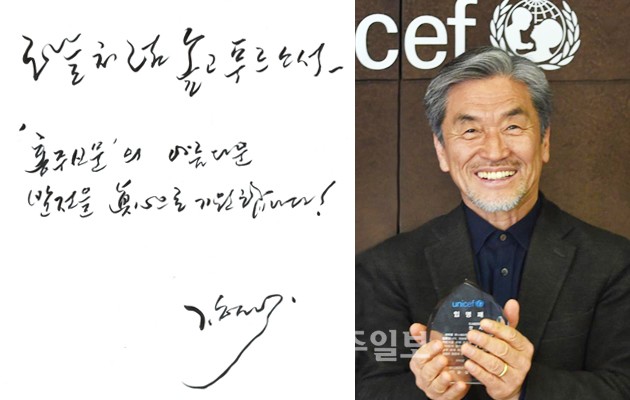 하늘처럼 높고 푸르소서_
'홍주신문'의 아름다운
발전을 眞心으로 기원합니다!
icef
unicef
임명패
주일보